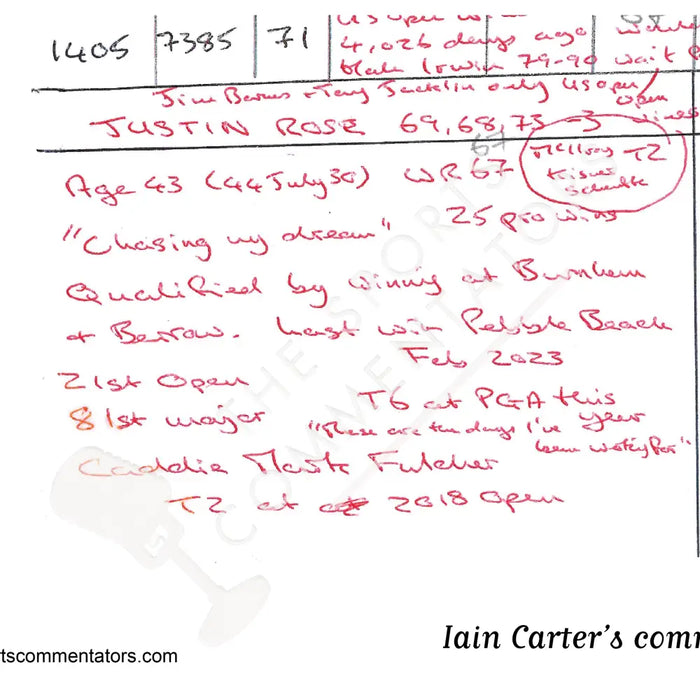 US Open w
1405 7385 71 4,026 days ago
Hale Irwin 79-90 wait
Jim Barnes + Tony Jacklin only US Open/
Open
JUSTIN ROSE 69, 68, 73 -3 wines
67
McIlroy T2
Kisner
Schauffele
Age 43 (44 July 30) WR 67
25 pro wins
"Chasing my dream"
Qualified by winning at Burnham
+ Berrow. Last win Pebble Beach
Feb 2023
21st Open
T6 at PGA this
year
81st major
"These are the days I've
been working for"
Caddie Mark Fulcher
T2 at 2018 Open
THE SPORTS
COMMENTATORS
Iain Carter's comm
rtscommentators.com